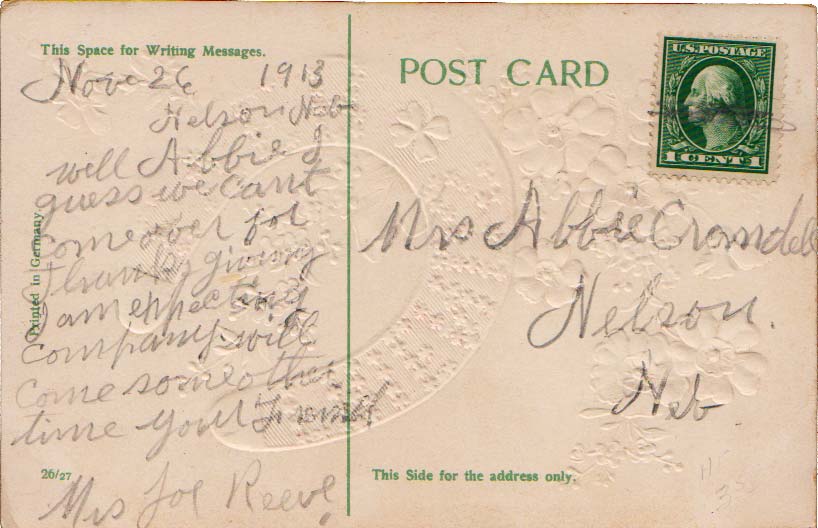 This Space for Writing Messages.
Nove 26 1913
Nelson Neb
well Abbie I
guess we cant
come over for
Thanks giving
I am expecting
company. will
come some other
time your Friend
Mrs Joe Reeve
Printed in Germany
26/27
POST CARD
U.S. POSTAGE
1 CENT 1
Mrs Abbie Crandell
Nelson.
Neb
This Side for the address only.